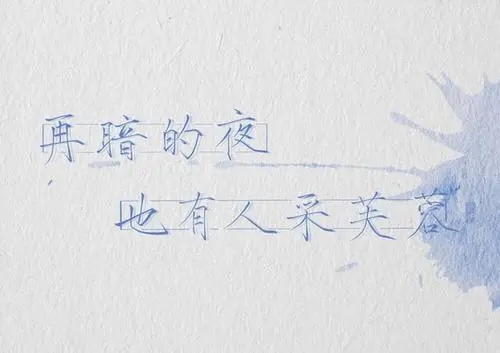 再暗的夜
也有人采芙蓉